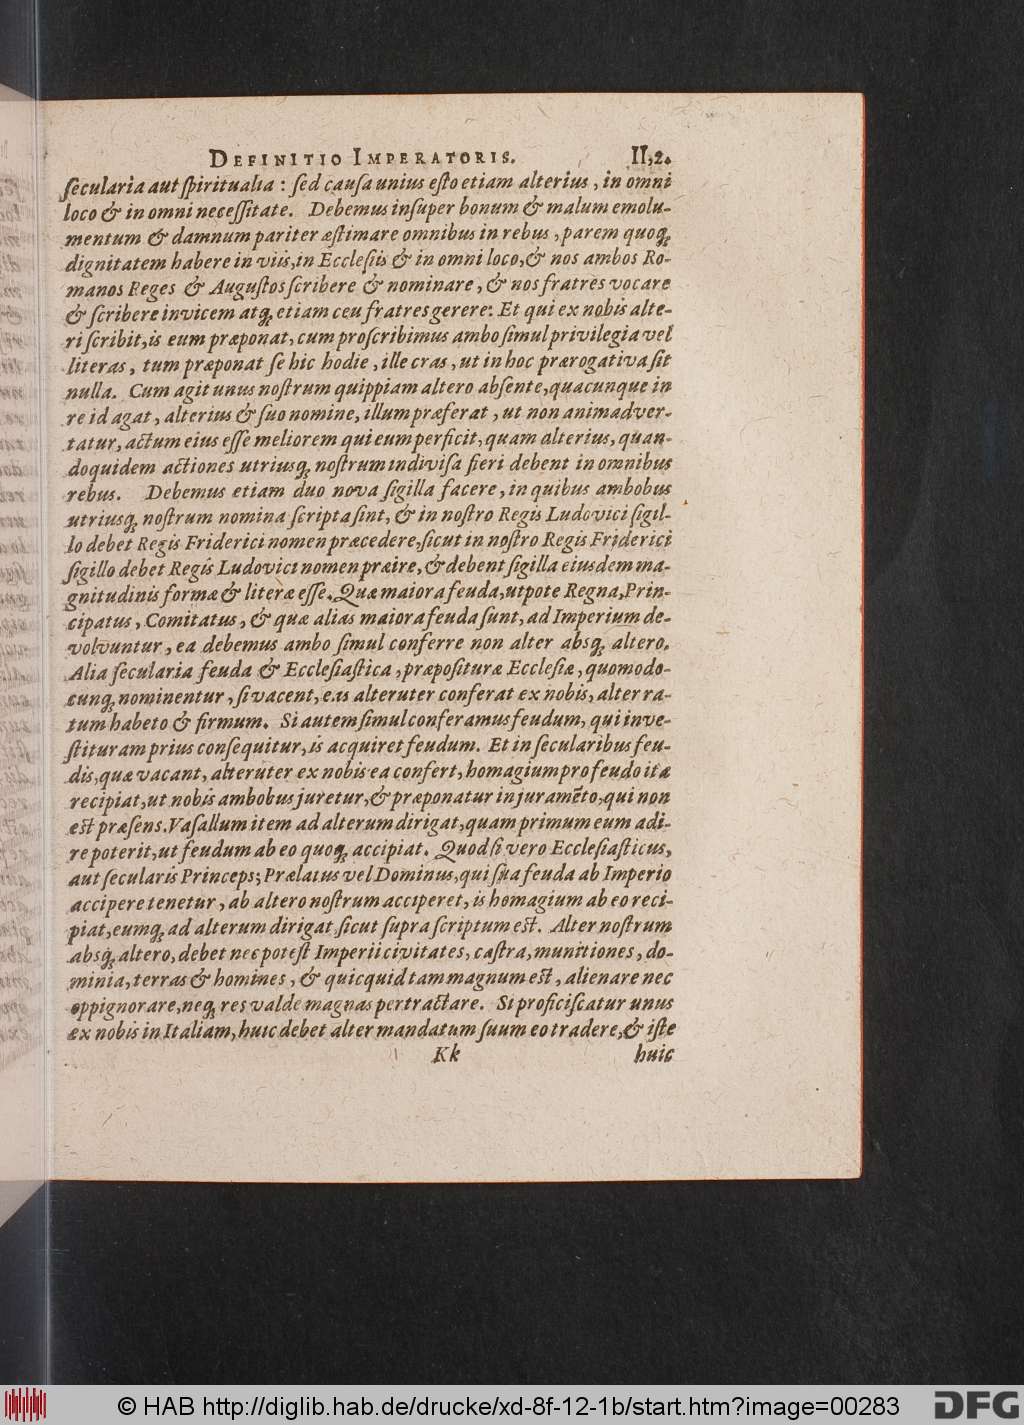 DEFINITIO IMPERATORIS. II,2.
ſecularia aut ſpiritualia : ſed cauſa unius eſto etiam alterius, in omni
loco & in omni neceſſitate. Debemus inſuper bonum & malum emolu-
mentum & damnum pariter æſtimare omnibus in rebus, parem quoq;
dignitatem habere in viis, in Eccleſiis & in omni loco, & nos ambos Ro-
manos Reges & Auguſtos ſcribere & nominare, & nos fratres vocare
& ſcribere invicem atq; etiam ceu fratres gerere: Et qui ex nobis alte-
ri ſcribit, is eum præponat, cum proſcribimus ambo ſimul privilegia vel
literas, tum præponat ſe hic hodie, ille cras, ut in hoc prærogativa ſit
nulla. Cum agit unus noſtrum quippiam altero abſente, quacunque in
re id agat, alterius & ſuo nomine, illum præferat, ut non animadver-
tatur, actum eius eſſe meliorem qui eum perficit, quam alterius, quan-
doquidem actiones utriusq; noſtrum indiviſa fieri debent in omnibus
rebus. Debemus etiam duo nova ſigilla facere, in quibus ambobus
utriusq; noſtrum nomina ſcripta ſint, & in noſtro Regis Ludovici ſigil-
lo debet Regis Friderici nomen præcedere, ſicut in noſtro Regis Friderici
ſigillo debet Regis Ludovici nomen præire, & debent ſigilla eiusdem ma-
gnitudinis formæ & literæ eſſe. Quæ maiora feuda, utpote Regna, Prin-
cipatus, Comitatus, & quæ alias maiora feuda ſunt, ad Imperium de-
volvuntur, ea debemus ambo ſimul conferre non alter absq; altero.
Alia ſecularia feuda & Eccleſiaſtica, præpoſituræ Eccleſiæ, quomodo-
cunq; nominentur, ſi vacent, eas alteruter conferat ex nobis, alter ra-
tum habeto & firmum. Si autem ſimul conferamus feudum, qui inve-
ſtituram prius conſequitur, is acquiret feudum. Et in ſecularibus feu-
dis, quæ vacant, alteruter ex nobis ea confert, homagium pro feudo ita
recipiat, ut nobis ambobus juretur, & præponatur in juramẽto, qui non
est præſens. Vaſallum item ad alterum dirigat, quam primum eum adi-
re poterit, ut feudum ab eo quoq; accipiat. Quod ſi vero Eccleſiaſticus,
aut ſecularis Princeps, Prælatus vel Dominus, qui ſua feuda ab Imperio
accipere tenetur, ab altero noſtrum acciperet, is homagium ab eo reci-
piat, eumq; ad alterum dirigat ſicut ſupra ſcriptum est. Alter noſtrum
absq; altero, debet nec poteſt Imperii civitates, caſtra, munitiones, do-
minia, terras & homines, & quicquid tam magnum est, alienare nec
oppignorare, neq; res valde magnas pertractare. Si proficiſcatur unus
ex nobis in Italiam, huic debet alter mandatum ſuum eo tradere, & iſte
Kk huic
© HAB http://diglib.hab.de/drucke/xd-8f-12-1b/start.htm?image=00283 DFG